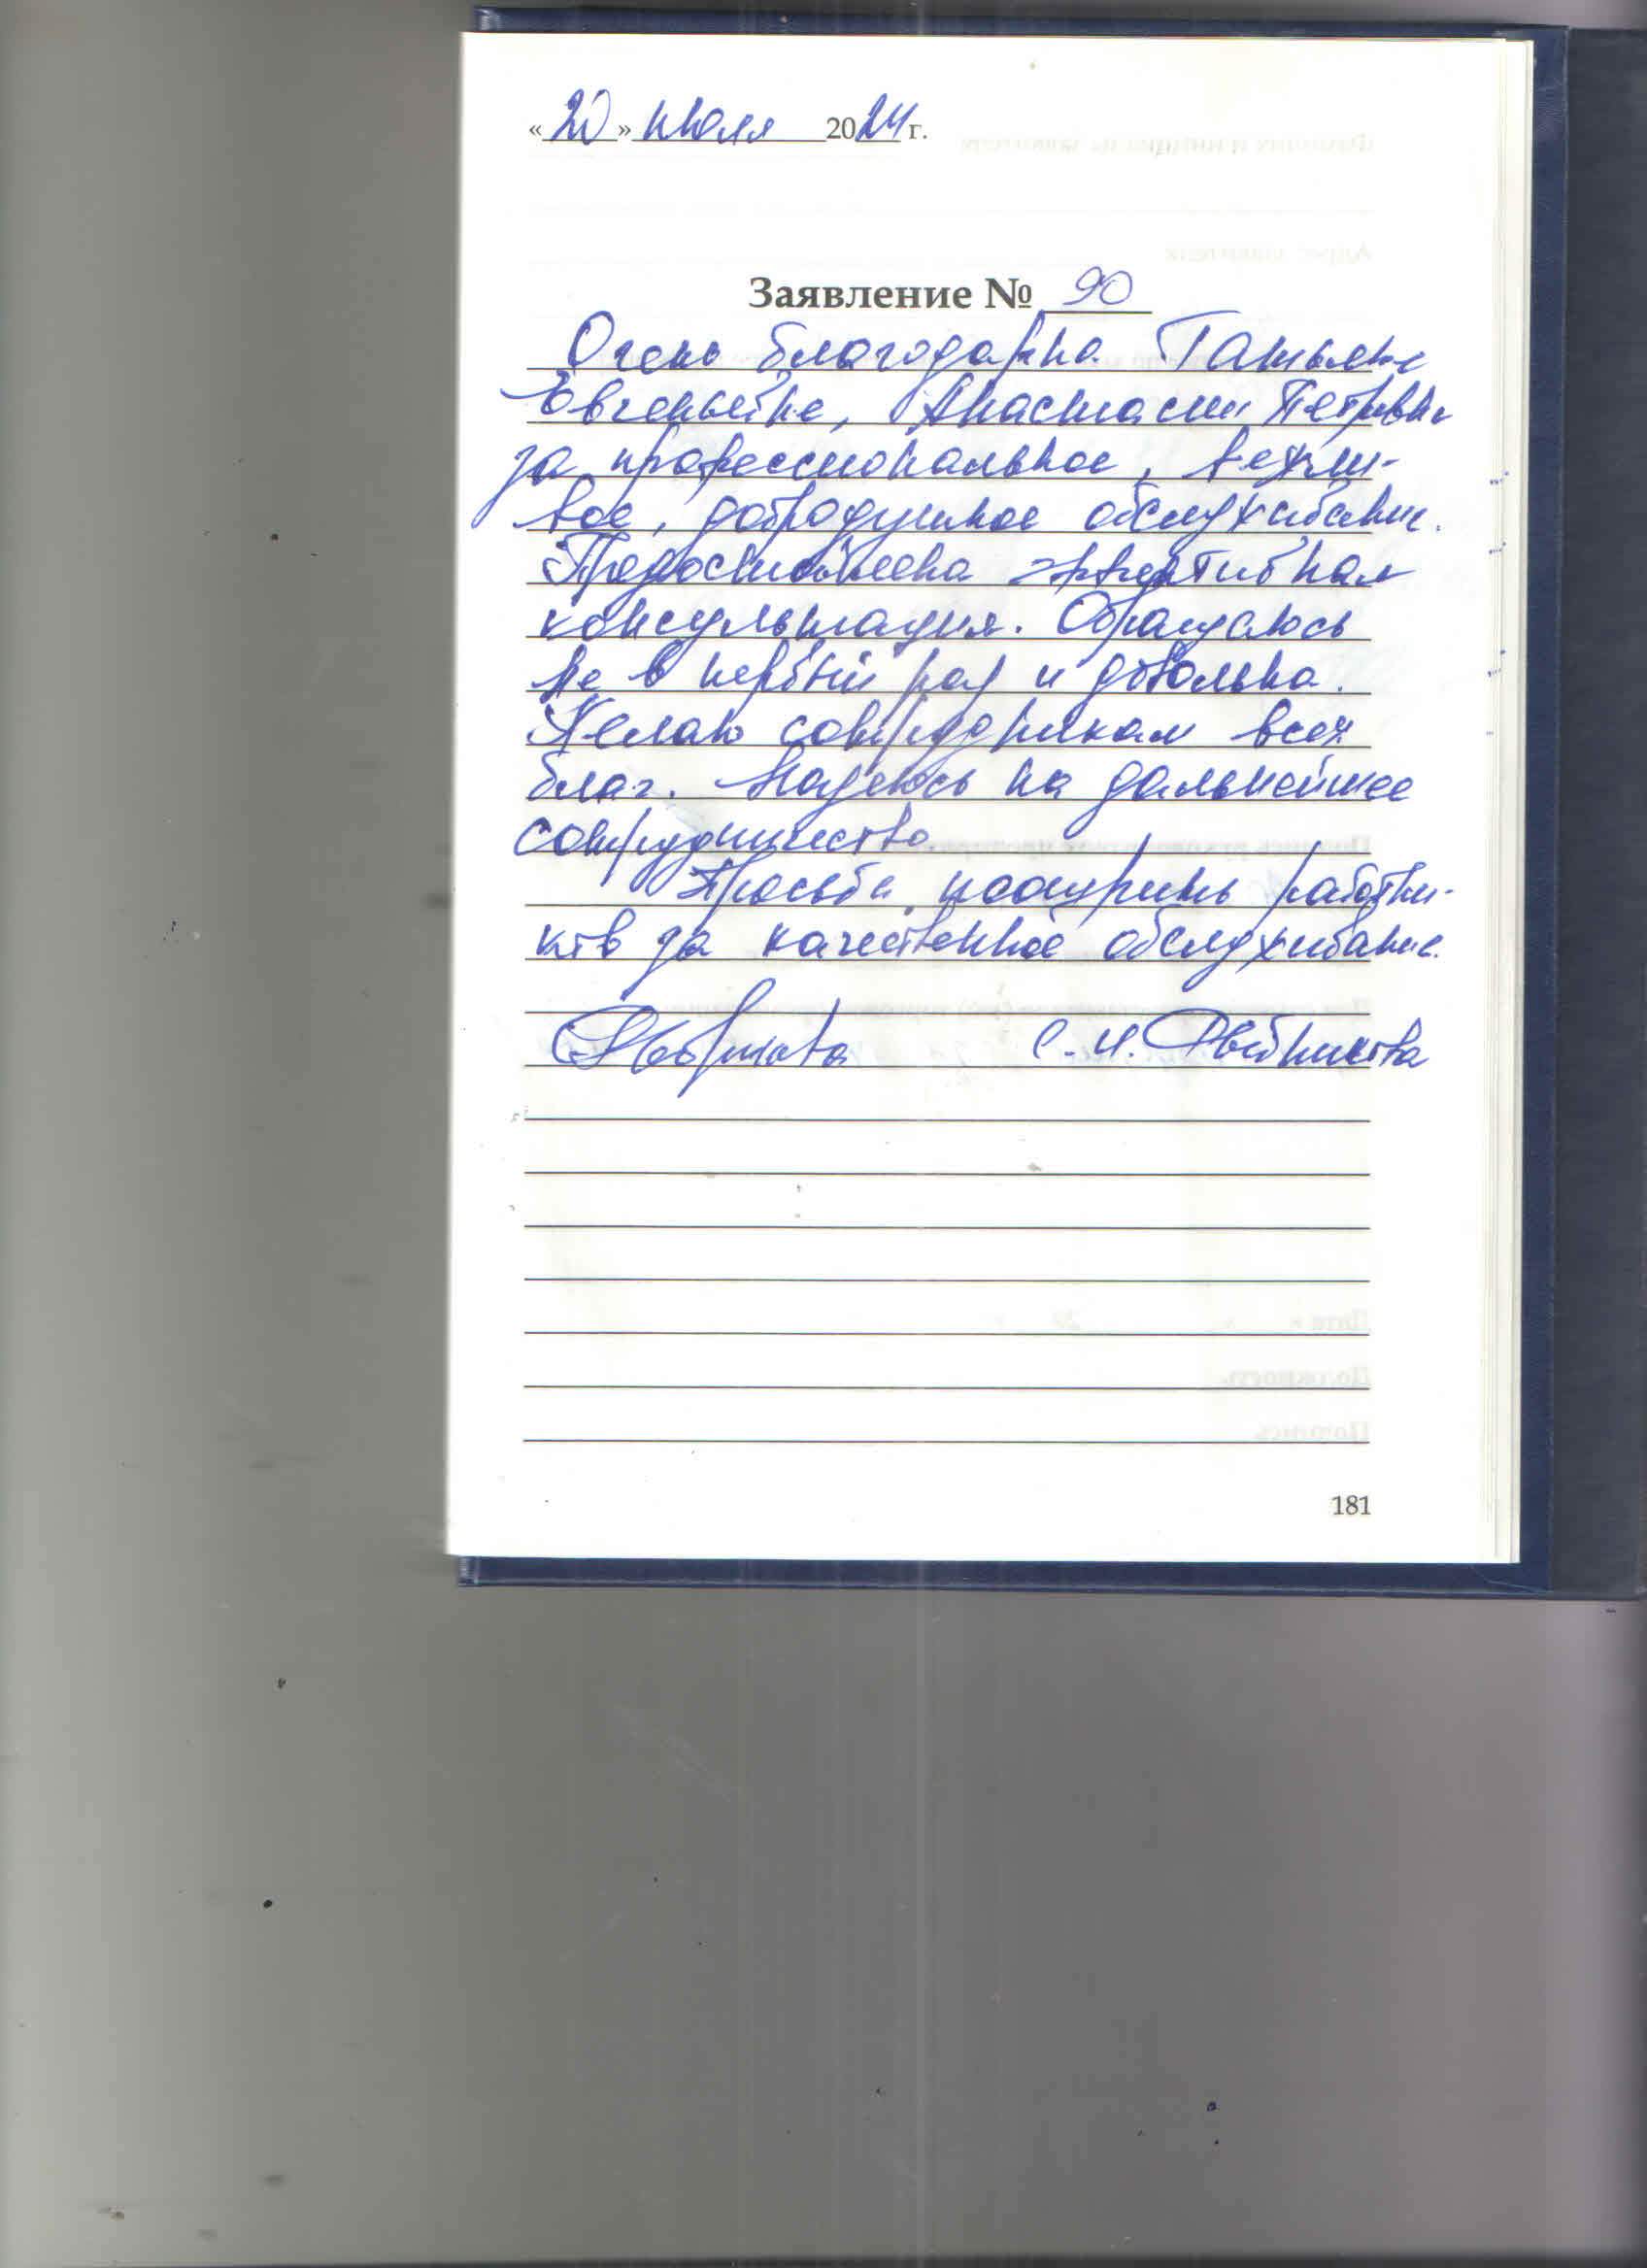 «20» июля 2024 г.
Заявление № 90
Очень благодарна Татьяне
Евгеньевне, Анастасии Петровне
за профессиональное, вежли-
вое, добродушное обслуживание.
Предоставлена эффективная
консультация. Обращаюсь
не в первый раз и довольна.
Желаю сотрудникам всех
благ. Надеюсь на дальнейшее
сотрудничество.
Просьба поощрить работни-
ков за качественное обслуживание.
С.И.
181